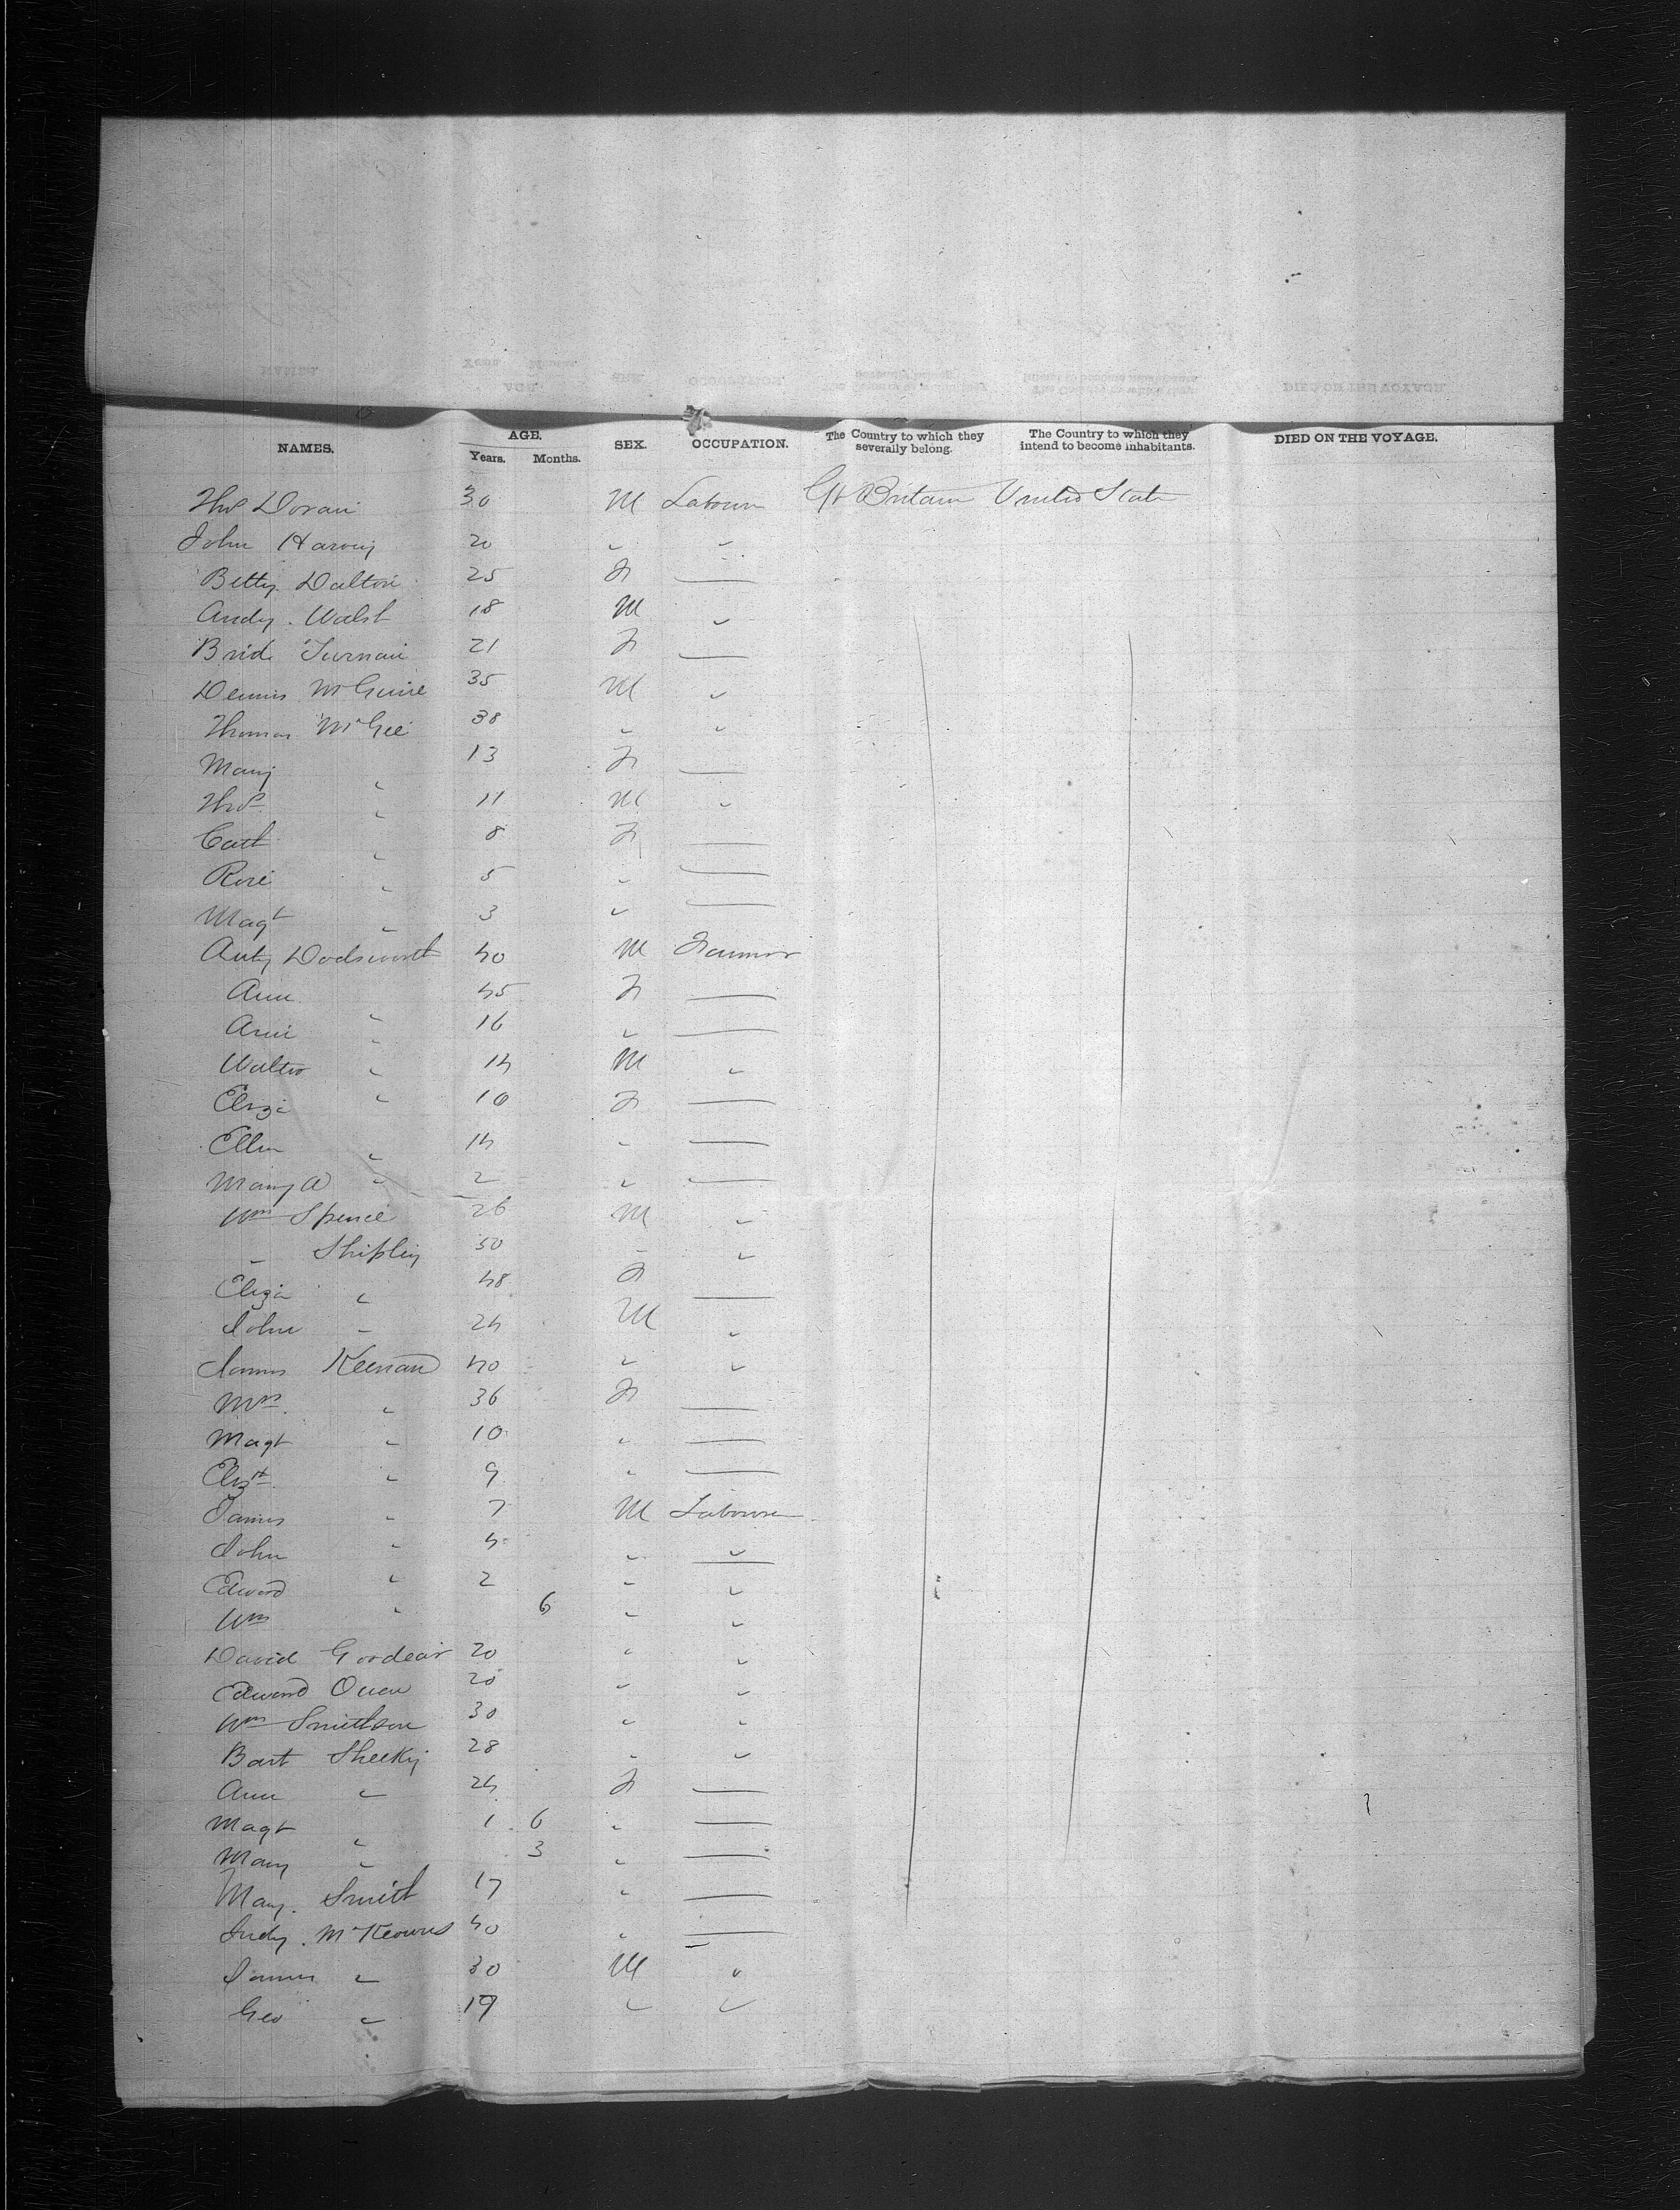 NAMES. AGE. Years. Months. SEX. OCCUPATION. The Country to which they severally belong. The Country to which they intend to become inhabitants. DIED ON THE VOYAGE.
Thos Doran 30 M Labourer Gt Britain United State
John Harvey 20 " "
Betty Dalton 25 F —
Andy Walsh 18 M "
Brid. 21 F —
Dennis McGuire 35 M "
Thomas McGee 38 " "
Mary " 13 F —
Thos " 11 M "
Cath " 8 F —
Rose " 5 " —
Magt " 3 " —
Anty Dodsworth 40 M Farmer
Ann " 45 F —
Ann " 16 " —
Walter " 14 M "
Eliza " 10 F —
Ellen " 14 " —
Mary A " 2 " —
Wm Spence 26 M "
" Shipley 50 " "
Eliza " 48 F —
John " 24 M "
James Keenan 40 " "
Mrs. " 36 F —
Magt " 10 " —
Elizth " 9 " —
James " 7 M Labourer
John " 4 " "
Edward " 2 " "
Wm " 6 " "
David Goodear 20 " "
Edward Owen 20 " "
Wm Smithson 30 " "
Bart Sheeky 28 " "
Ann " 24 F —
Magt " 1 6 " —
Mary " 3 " —
Mary. Smith 17 " —
Judy. McKeowns 40 " —
James " 30 M "
Geo " 19 " "